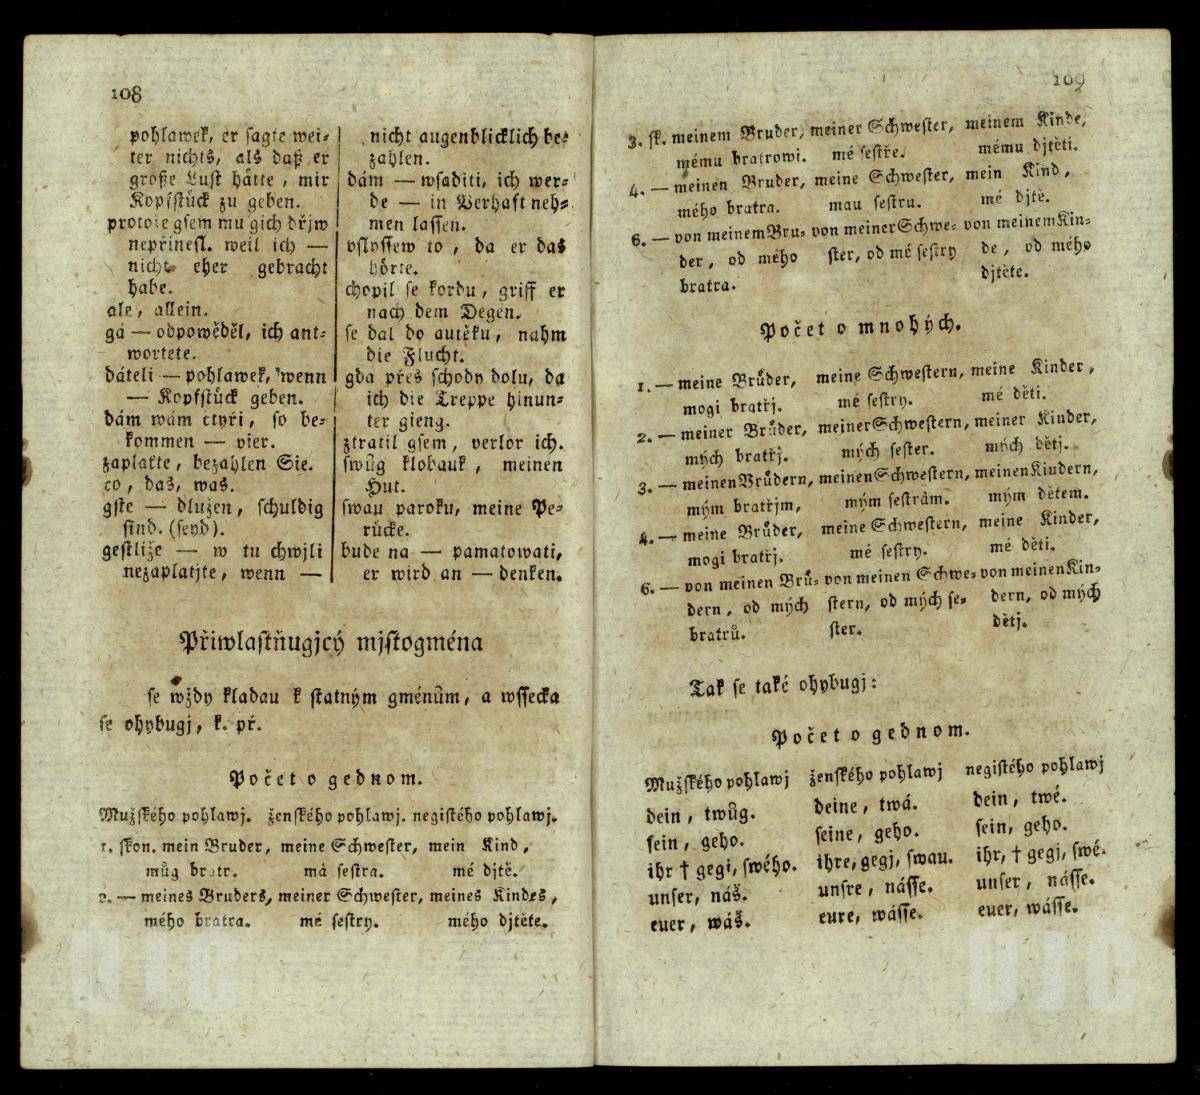 108
pohlawek, er sagte wei=
ter nichts, als daß er
große Lust hätte, mir
Kopfstück zu geben.
protože gsem mu gich dřjw
nepřinesl. weil ich —
nicht eher gebracht
habe.
ale, allein.
gá — odpowěděl, ich ant=
wortete.
dáteli — pohlawek, wenn
— Kopfstück geben.
dám wám čtyři, so be=
kommen — vier.
zaplaťte, bezahlen Sie.
co, das, was.
gste — dlužen, schuldig
sind. (seyd).
gestliže — w tu chwjli
nezaplatjte, wenn —
nicht augenblicklich be=
zahlen.
dám — wsaditi, ich wer=
de — in Verhaft neh=
men lassen.
vslyssew to, da er das
hörte.
chopil se kordu, griff er
nach dem Degen.
se dal do autěku, nahm
die Flucht.
gda přes schody dolu, da
ich die Treppe hinun=
ter gieng.
ztratil gsem, verlor ich.
swůg klobauk, meinen
Hut.
swau paroku, meine Pe=
rücke.
bude na — pamatowati,
er wird an — denken.
Přiwlastňugjcý mjstogména
se wždy kladau k statným gménům, a wssecka
se ohybugj, k. př.
Počet o gednom.
Mužského pohlawj. ženského pohlawj. negistého pohlawj.
1. skon. mein Bruder, meine Schwester, mein Kind,
můg bratr. má sestra. mé djtě.
2. — meines Bruders, meiner Schwester, meines Kindes,
mého bratra. mé sestry. mého djtěte.
109
3. sk. meinem Bruder, meiner Schwester, meinem Kinde,
mému bratrowi. mé sestře. mému djtěti.
4. — meinen Bruder, meine Schwester, mein Kind,
mého bratra. mau sestru. mé djtě.
6. — von meinem Bru= von meiner Schwe= von meinem Kin=
der, od mého ster, od mé sestry de, od mého
bratra. djtěte.
Počet o mnohých.
1. — meine Brüder, meine Schwestern, meine Kinder,
mogi bratřj. mé sestry. mé děti.
2. — meiner Brüder, meiner Schwestern, meiner Kinder,
mých bratřj. mých sester. mých dětj.
3. — meinen Brüdern, meinen Schwestern, meinen Kindern,
mým bratřjm, mým sestrám. mým dětem.
4. — meine Brüder, meine Schwestern, meine Kinder,
mogi bratřj. mé sestry. mé děti.
6. — von meinen Brü= von meinen Schwe= von meinen Kin=
dern, od mých stern, od mých se= dern, od mých
bratrů. ster. dětj.
Tak se také ohybugj:
Počet o gednom.
Mužského pohlawj ženského pohlawj negistého pohlawj
dein, twůg. deine, twá. dein, twé.
sein, geho. seine, geho. sein, geho.
ihr † gegi, swého. ihre, gegj, swau. ihr, † gegj, swé.
unser, náš. unsre, násse. unser, násse.
euer, wáš. eure, wásse. euer, wásse.